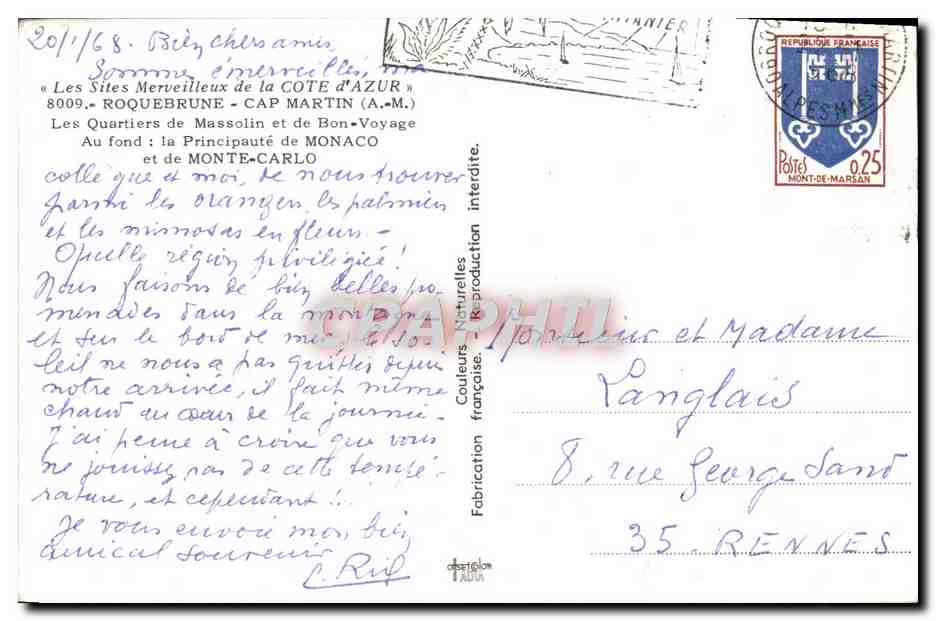 20/1/68. Bien chers amis,
Sommes émerveillés, ma
« Les Sites Merveilleux de la COTE d'AZUR »
8009.- ROQUEBRUNE - CAP MARTIN (A.-M.)
Les Quartiers de Massolin et de Bon-Voyage
Au fond : la Principauté de MONACO
et de MONTE-CARLO
collègue et moi, de nous trouver
parmi les orangers, les palmiers
et les mimosas en fleurs -
Quelle région privilégiée !
Nous faisons de bien belles pro-
menades dans la montagne
et sur le bord de mer, le so-
leil ne nous a pas quittés depuis
notre arrivée, il fait même
chaud au cœur de la journée -
J'ai peine à croire que vous
ne jouissez pas de cette tempé-
rature, et cependant !..
Je vous envoie mon bien
amical souvenir
Couleurs Naturelles
Fabrication française. - Reproduction interdite.
CPAPHIL
REPUBLIQUE FRANÇAISE
POSTES 0,25
MONT-DE-MARSAN
Monsieur et Madame
Langlais
8, rue George Sand
35. RENNES